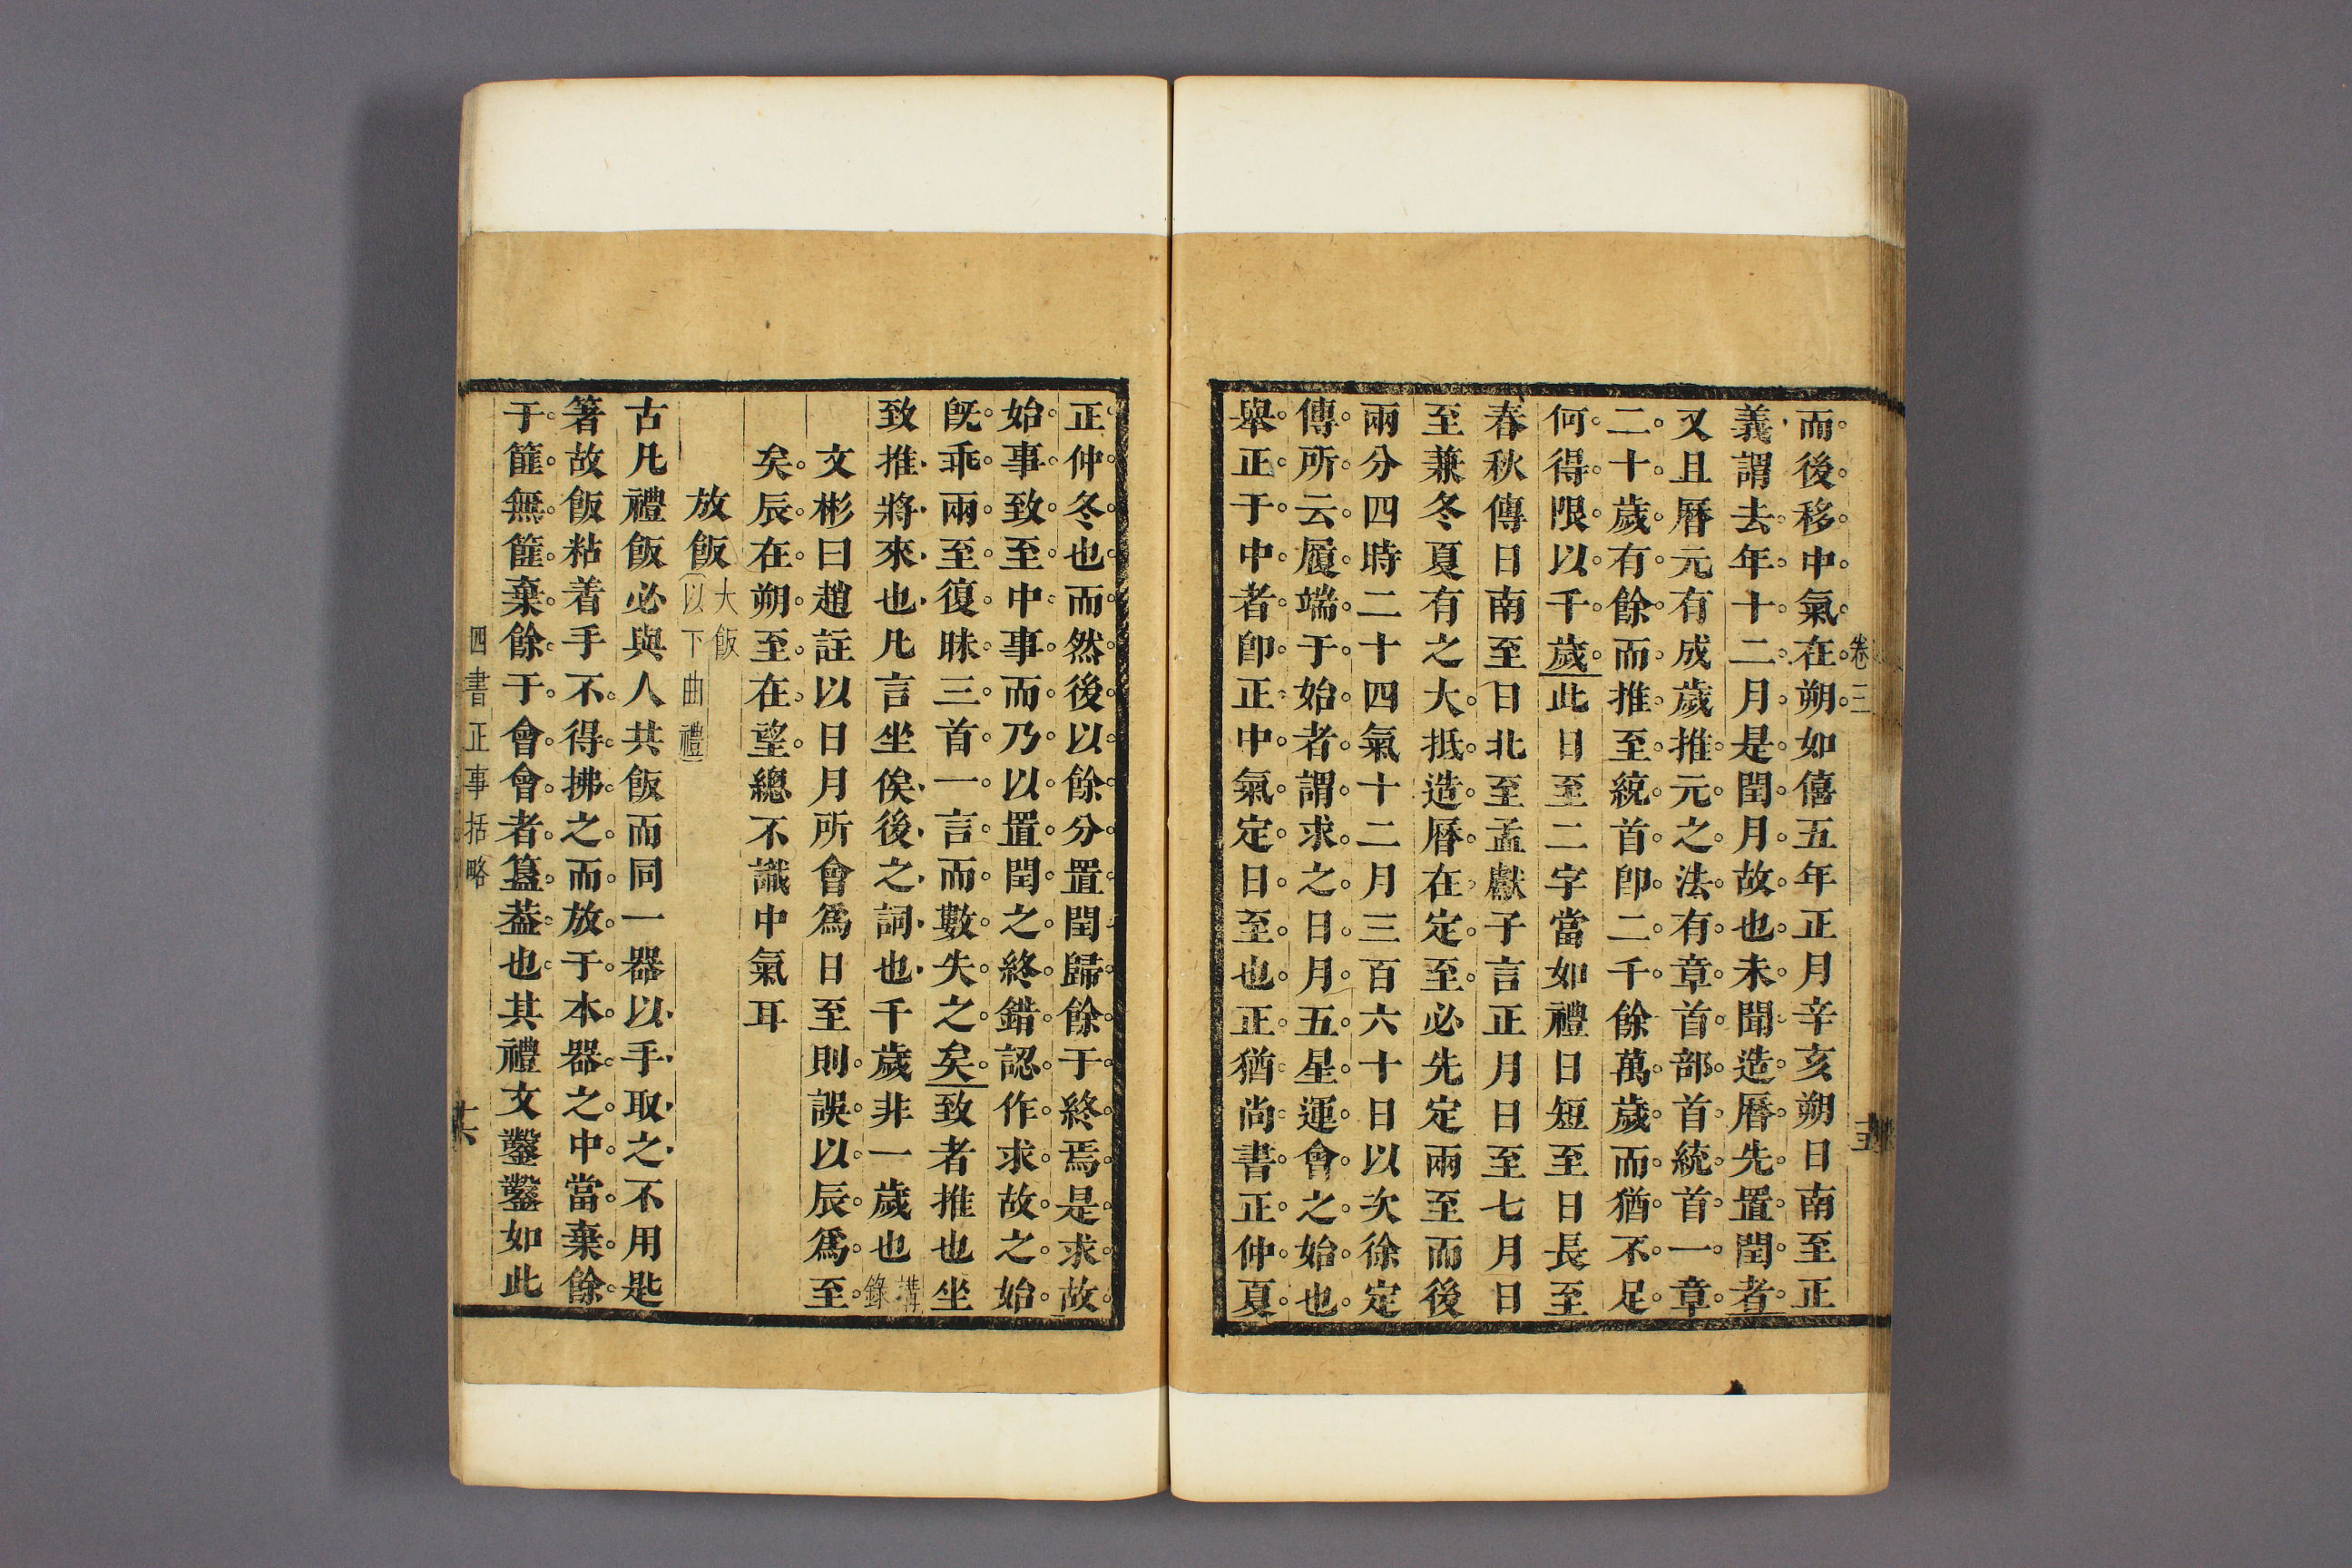 卷三
而後移中氣在朔如僖五年正月辛亥朔日南至正
義謂去年十二月是閏月故也未聞造曆先置閏者
又且曆元有成歲推元之法有章首部首統首一章
二十歲有餘而推至統首卽二千餘萬歲而猶不足
何得限以千歲此日至二字當如禮日短至日長至
春秋傳日南至日北至孟獻子言正月日至七月日
至兼冬夏有之大抵造曆在定至必先定兩至而後
兩分四時二十四氣十二月三百六十日以次徐定
傳所云履端于始者謂求之日月五星運會之始也
舉正于中者卽正中氣定日至也正猶尚書正仲夏
正仲冬也而然後以餘分置閏歸餘于終焉是求故
始事致至中事而乃以置閏之終錯認作求故之始
旣乖兩至復昧三首一言而數失之矣致者推也坐
致推將來也凡言坐俟後之詞也千歲非一歲也講錄
文彬曰趙註以日月所會爲日至則誤以辰爲至
矣辰在朔至在望總不識中氣耳
放飯大飯以下曲禮
古凡禮飯必與人共飯而同一器以手取之不用匙
箸故飯粘着手不得拂之而放于本器之中當棄餘
于篚無篚棄餘于會會者簋蓋也其禮文鑿鑿如此
四書正事括略
十六